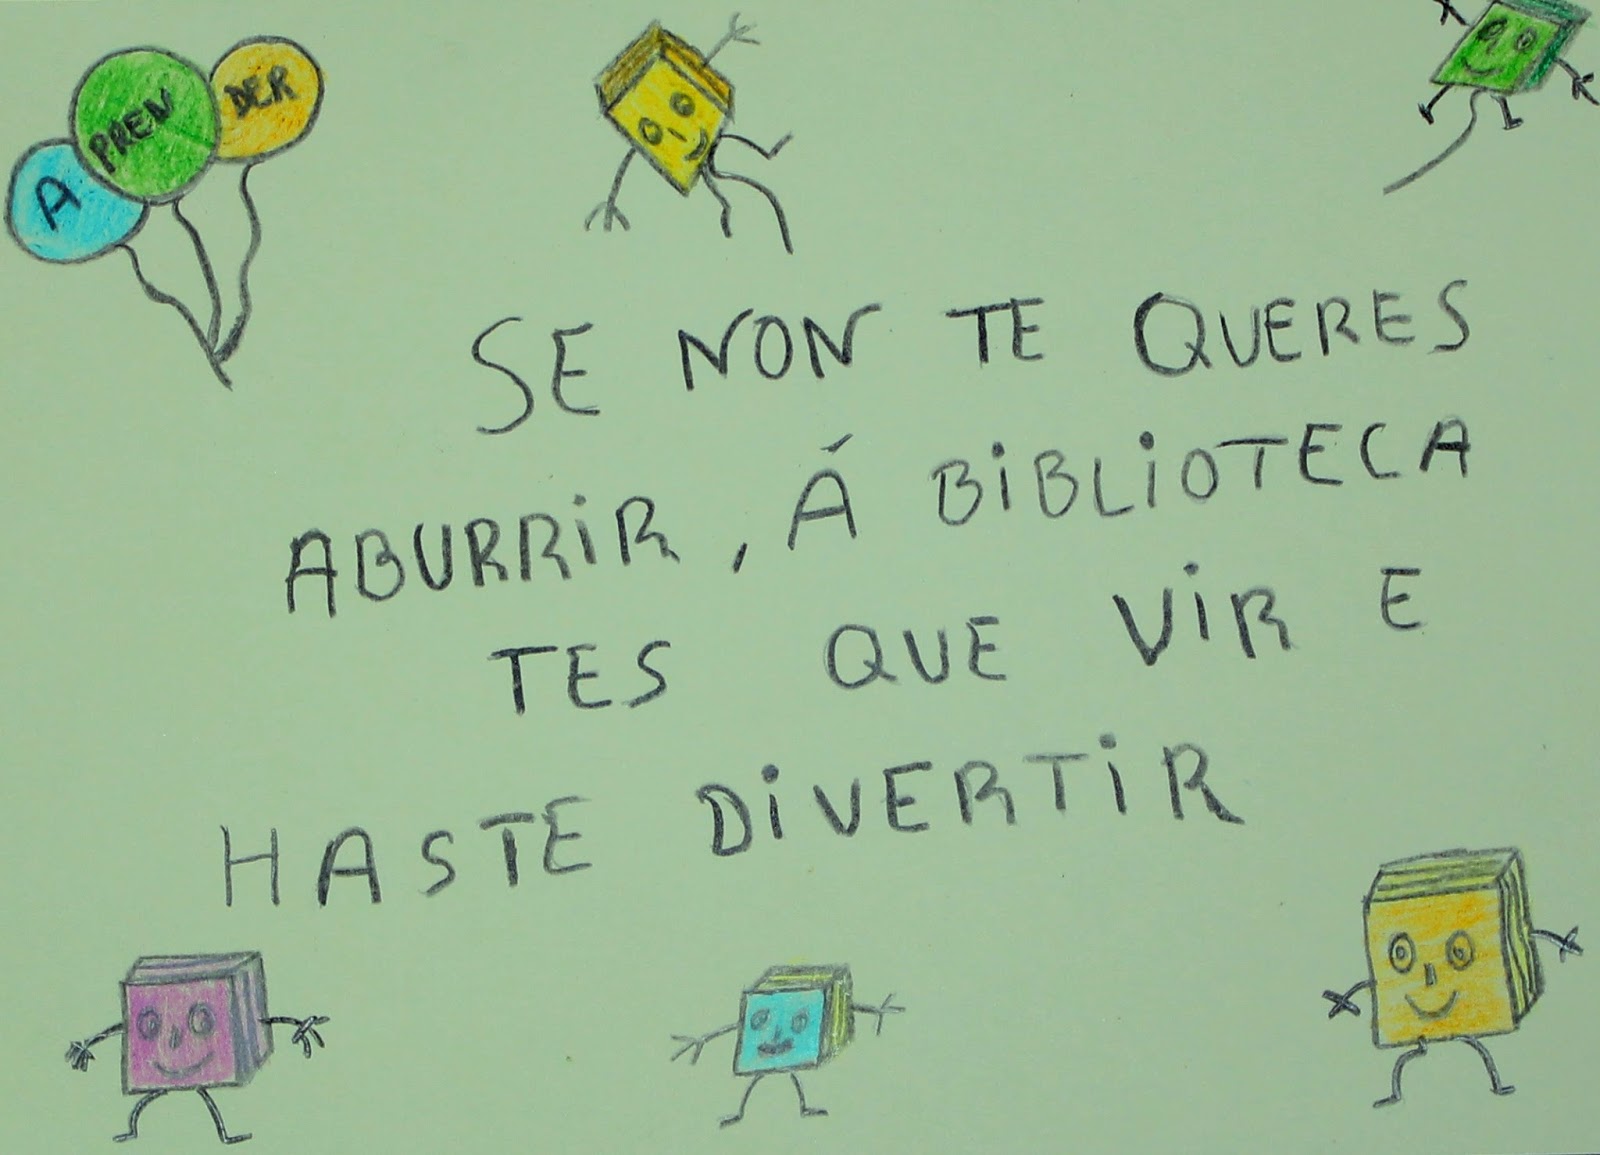 A
PREN
DER
SE NON TE QUERES
ABURRIR, Á BIBLIOTECA
TES QUE VIR E
HASTE DIVERTIR